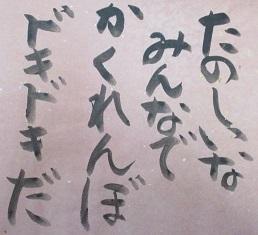 たのしいな
みんなで
かくれんぼ
ドキドキだ